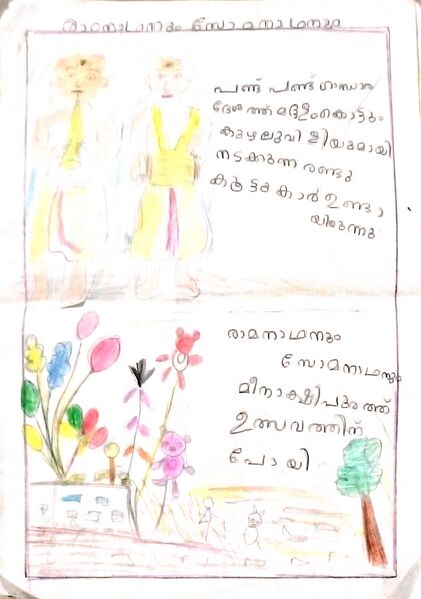 രാമനാഥനും സോമനാഥനും
പണ്ട് പണ്ട് ഗാന്ധാര
ദേശത്ത് മദ്ദളംകൊട്ടും
കുഴലുവിളിയുമായി
നടക്കുന്ന രണ്ടു
കൂട്ടുകാർ ഉണ്ടാ
യിരുന്നു
രാമനാഥനും
സോമനാഥനും
മീനാക്ഷിപുരത്ത്
ഉത്സവത്തിന്
പോയി